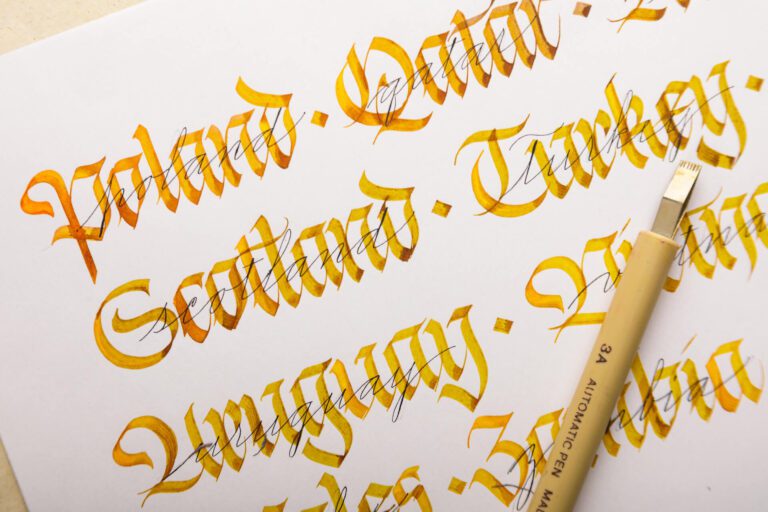 Poland · Qatar ·
poland qatar
Scotland · Turkey ·
scotland turkey
Uruguay ·
uruguay
· Zambia
3A AUTOMATIC PEN